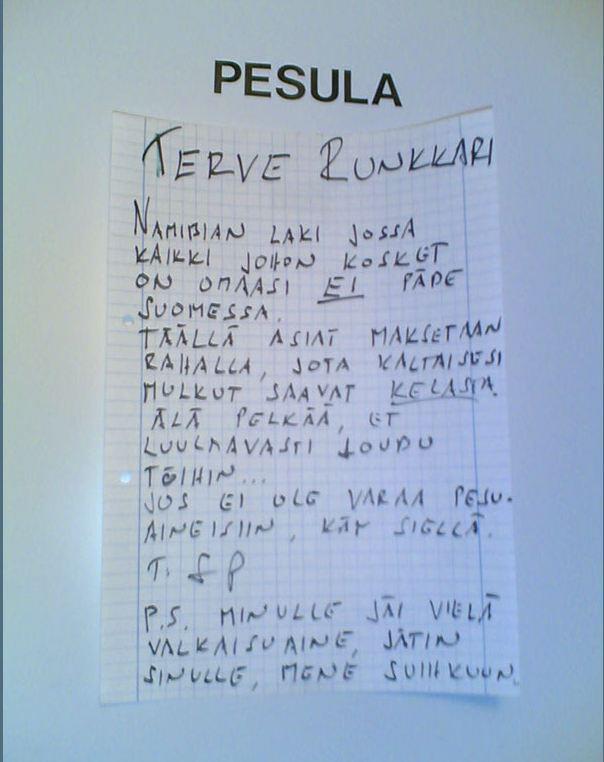 PESULA
TERVE RUNKKARI
NAMIBIAN LAKI JOSSA
KAIKKI JOHON KOSKET
ON OMAASI EI PÄDE
SUOMESSA.
TÄÄLLÄ ASIAT MAKSETAAN
RAHALLA, JOTA KALTAISESI
MULKUT SAAVAT KELASTA.
ÄLÄ PELKÄÄ, ET
LUULTAVASTI JOUDU
TÖIHIN...
JOS EI OLE VARAA PESU-
AINEISIIN, KÄY SIELLÄ.
T. S P
P.S. MINULLE JÄI VIELÄ
VALKAISUAINE, JÄTIN
SINULLE, MENE SUIHKUUN.